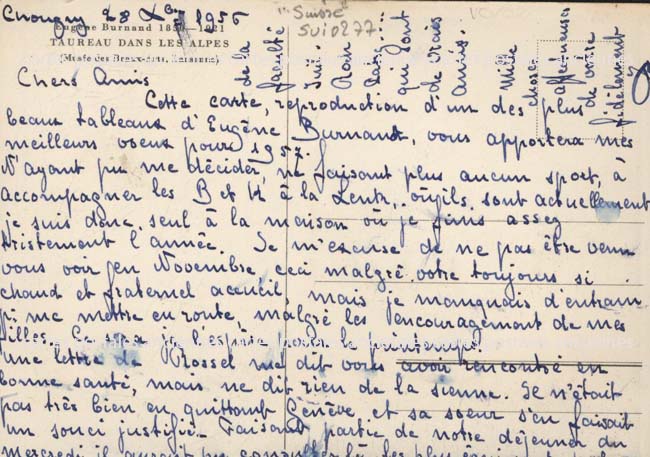 Chougny 28 Xbre 1956
"Suisse"
SUI0277
Eugène Burnand 1850—1921
TAUREAU DANS LES ALPES
(Musée des Beaux-Arts, Lausanne)
Chers Amis
Cette carte, reproduction d'un des plus
beaux tableaux d'Eugène Burnand, vous apportera mes
meilleurs voeux pour 1957.
N'ayant pu me décider, ne faisant plus aucun sport, à
accompagner les B et H à la Lenk, où ils sont actuellement
je suis donc seul à la maison où je finis assez
tristement l'année. Je m'excuse de ne pas être venu
vous voir en Novembre, ceci malgré votre toujours si
chaud et fraternel accueil, mais je manquais d'entrain
pr me mettre en route, malgré les encouragement de mes
filles. Ce sera je l'espère pour le printemps!
une lettre de Rossel me dit vous avoir rencontré en
bonne santé, mais ne dit rien de la sienne. Il n'était
pas très bien en quittant Genève et sa soeur s'en faisait
un souci justifié. Faisant partie de notre déjeuner du
mercredi il aurait pu consulter là les plus
de la
faculté
qui sont
de vrais
amis.
Mille
choses
affectueuses
de votre
fidèlement